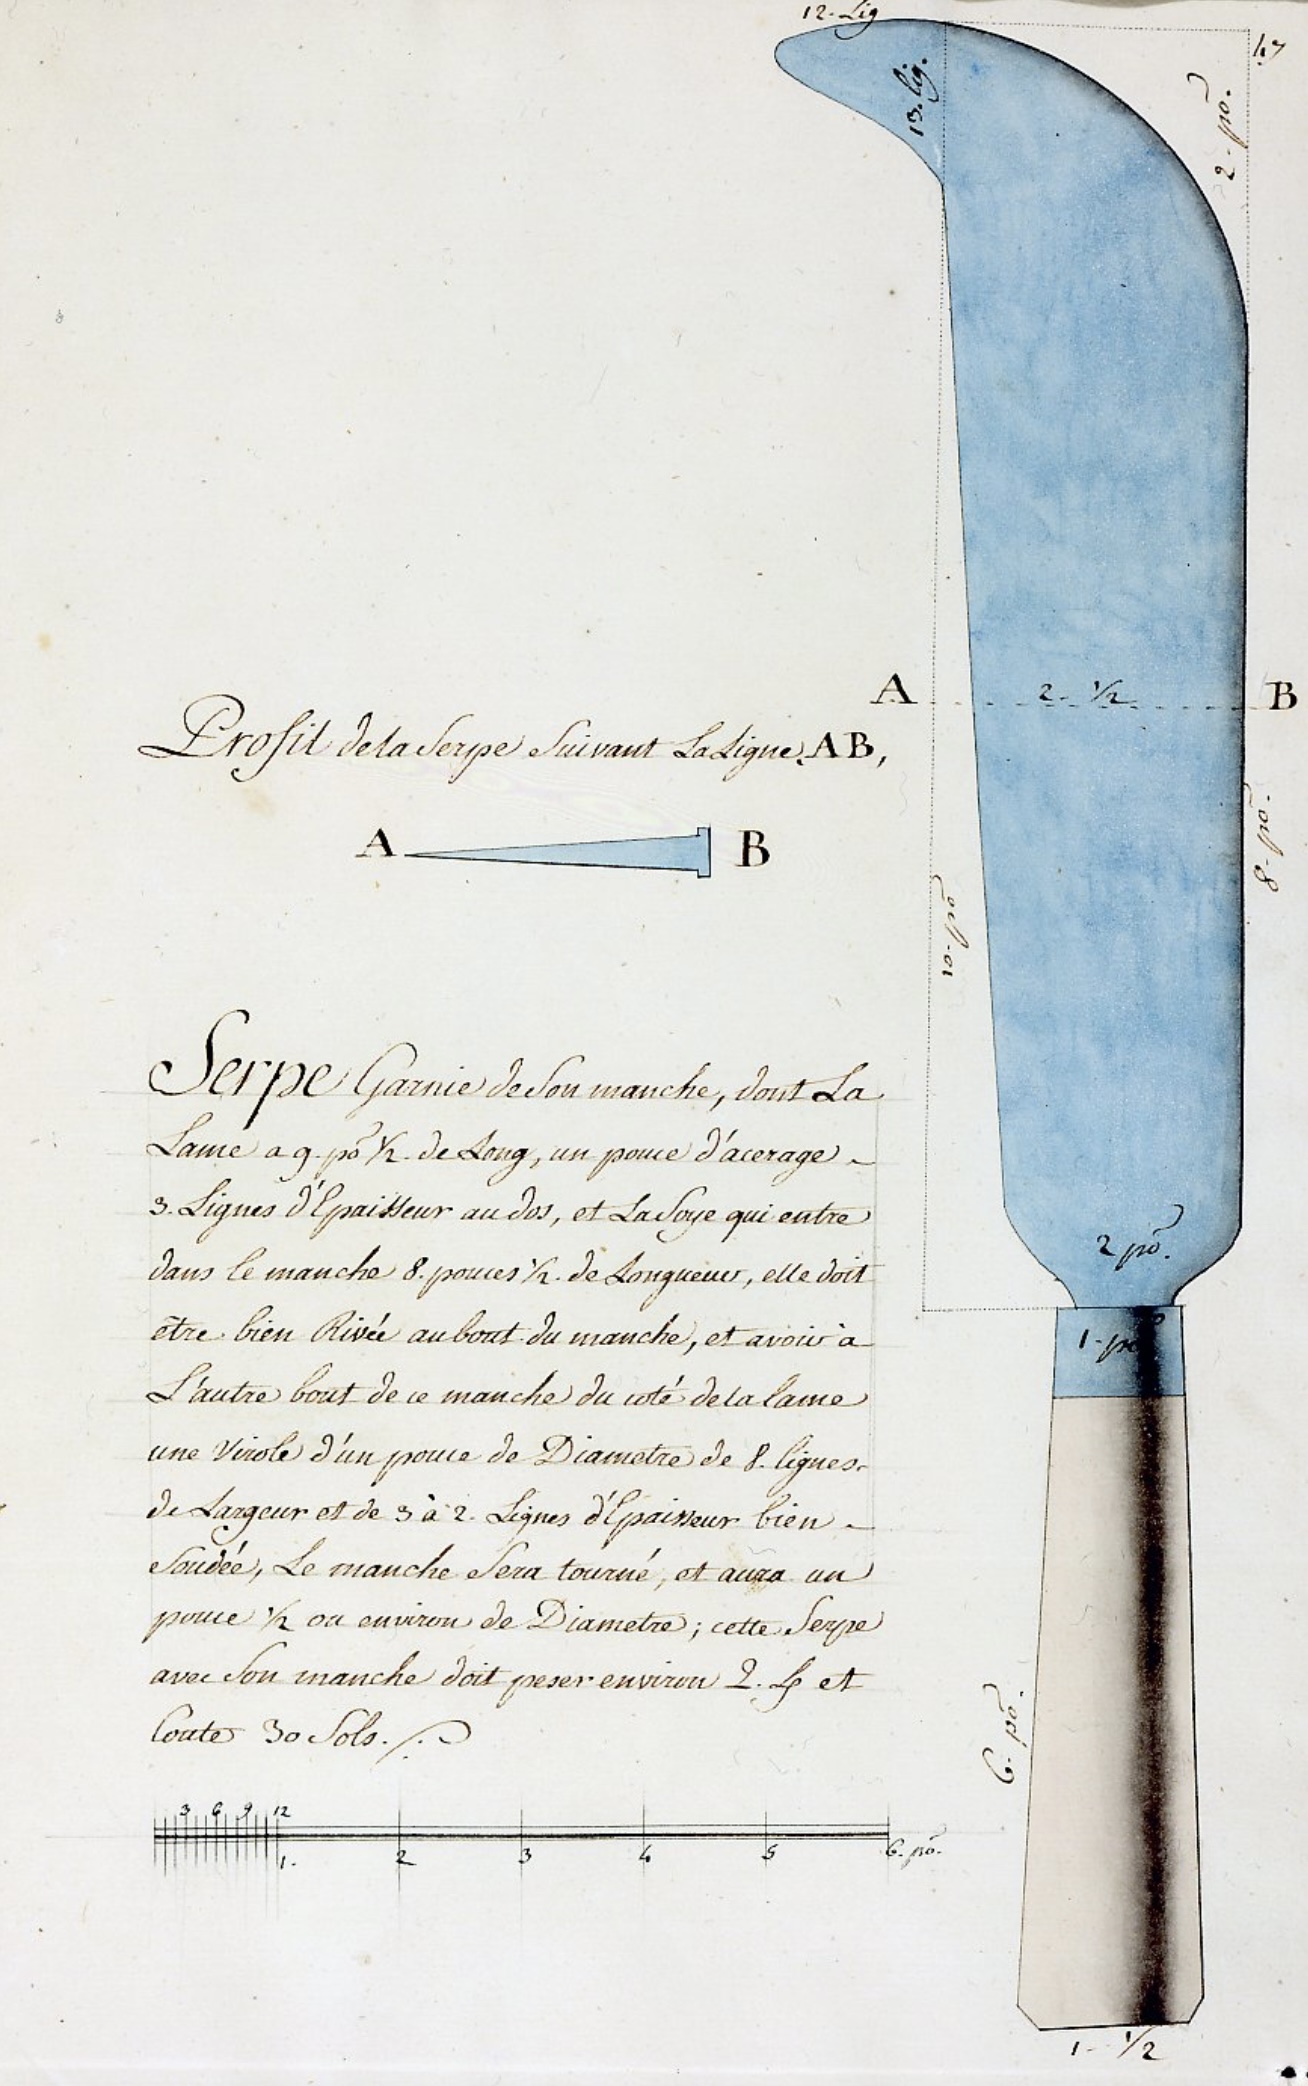 12. Lig
47
13. lig.
2. po.
A 2. 1/2 B
Profil de la Serpe Suivant La Ligne, AB,
A B
8. po.
10. po
Serpe Garnie de Son manche, dont La
Lame a 9. po 1/2. de Long, un pouce d'acerage -
3. Lignes d'Epaisseur au dos, et La Soye qui entre
dans le manche 8. pouces 1/2. de Longueur, elle doit
être bien Rivée au bout du manche, et avoir à
L'autre bout de ce manche du coté de la lame
une Virole d'un pouce de Diametre de 8. lignes
de Largeur et de 3 à 2. Lignes d'Epaisseur bien -
Soudée, Le manche Sera tourné, et aura un
pouce 1/2 ou environ de Diametre; cette Serpe
avec Son manche doit peser environ 2. et
Coute 30 Sols.
2 po.
1. po
6. po.
3 6 9 12
1. 2 3 4 5 6. po.
1. 1/2